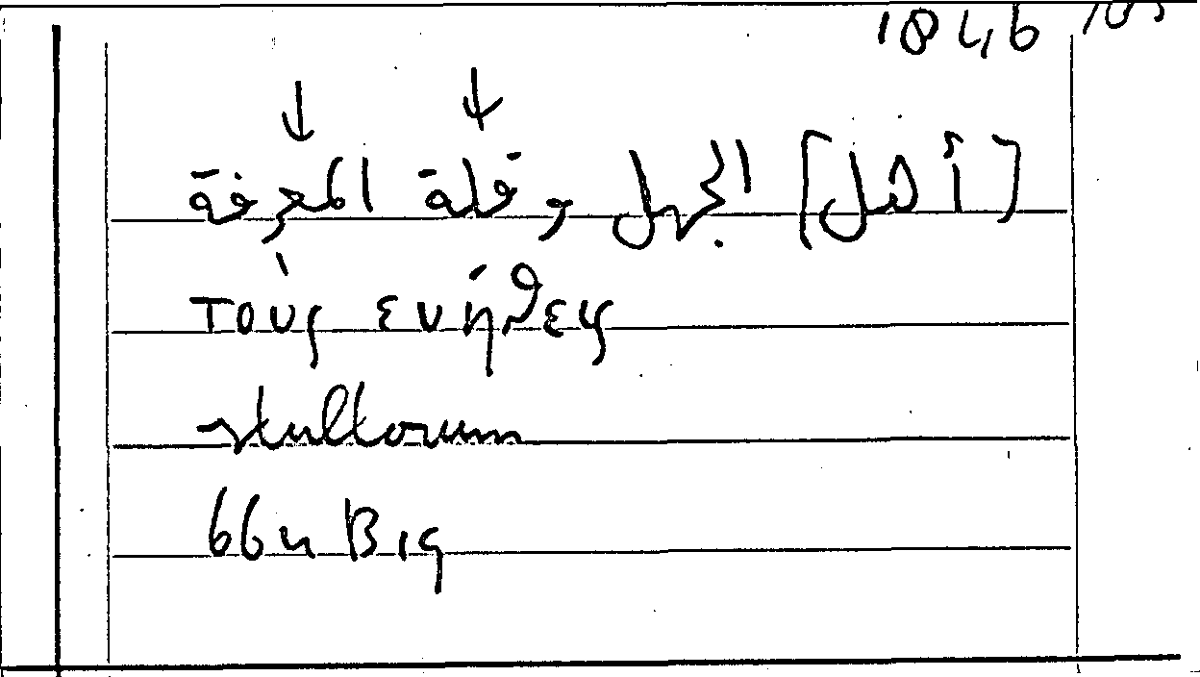 1846
[أهل] الجهل وقلة المعرفة
τοὺς ευήθεις
stultorum
66u B19